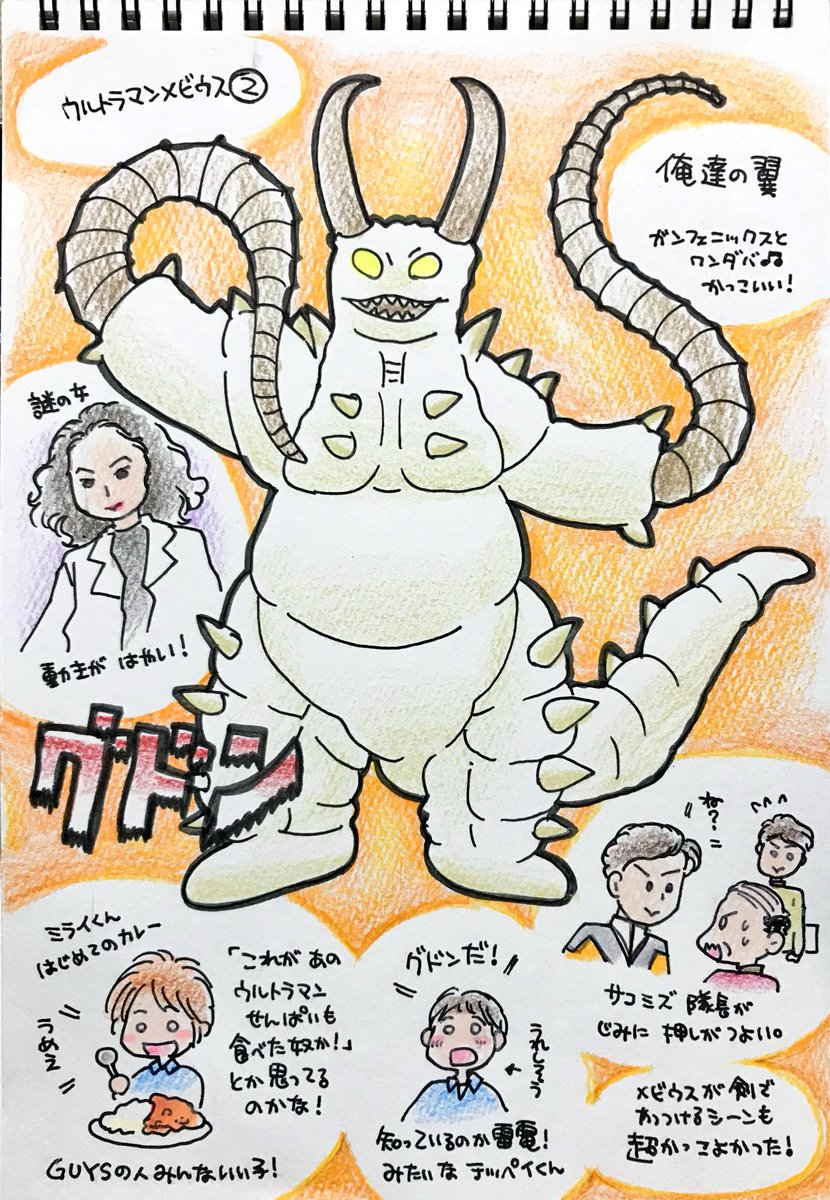 ウルトラマンメビウス②
俺達の翼
ガンフェニックスと
ワンダバ♫
かっこいい!
謎の女
動きが はやい!
グドン
ね?
サコミズ 隊長が
じみに 押しがつよい。
ミライくん
はじめてのカレー
うめえ
「これが あの
ウルトラマン
せんぱいも
食べた奴か!」
とか思ってる
のかな!
GUYSの人みんないい子!
グドンだ!
うれしそう
知っているのか雷電!
みたいな テッペイくん
メビウスが 剣で
やっつけるシーンも
超かっこよかった!